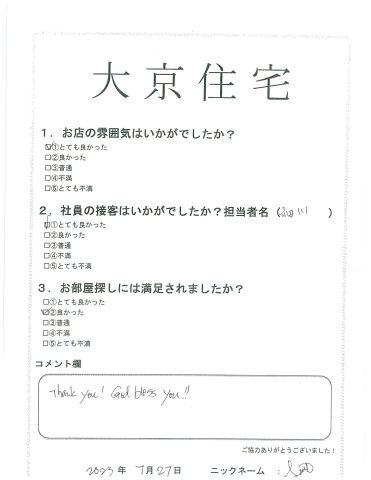 大京住宅
1．お店の雰囲気はいかがでしたか？
☑①とても良かった
□②良かった
□③普通
□④不満
□⑤とても不満
2．社員の接客はいかがでしたか？担当者名（ 川 ）
☑①とても良かった
□②良かった
□③普通
□④不満
□⑤とても不満
3．お部屋探しには満足されましたか？
□①とても良かった
☑②良かった
□③普通
□④不満
□⑤とても不満
コメント欄
Thank you! God bless you!!
ご協力ありがとうございました！
2023年 7月27日 ニックネーム：